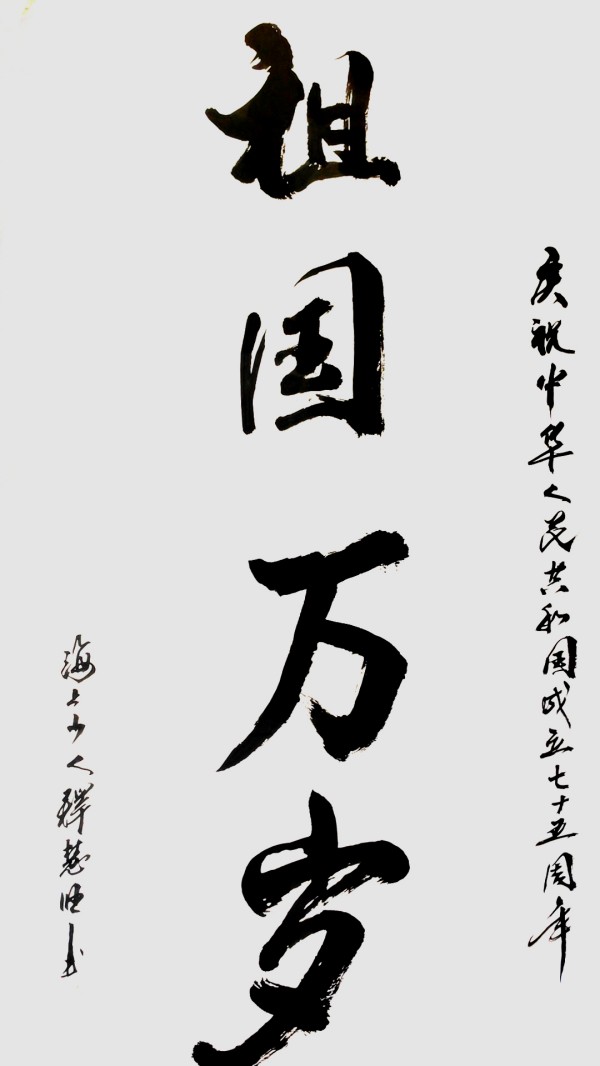 庆祝中华人民共和国成立七十五周年
祖国万岁
海上山人释慧书